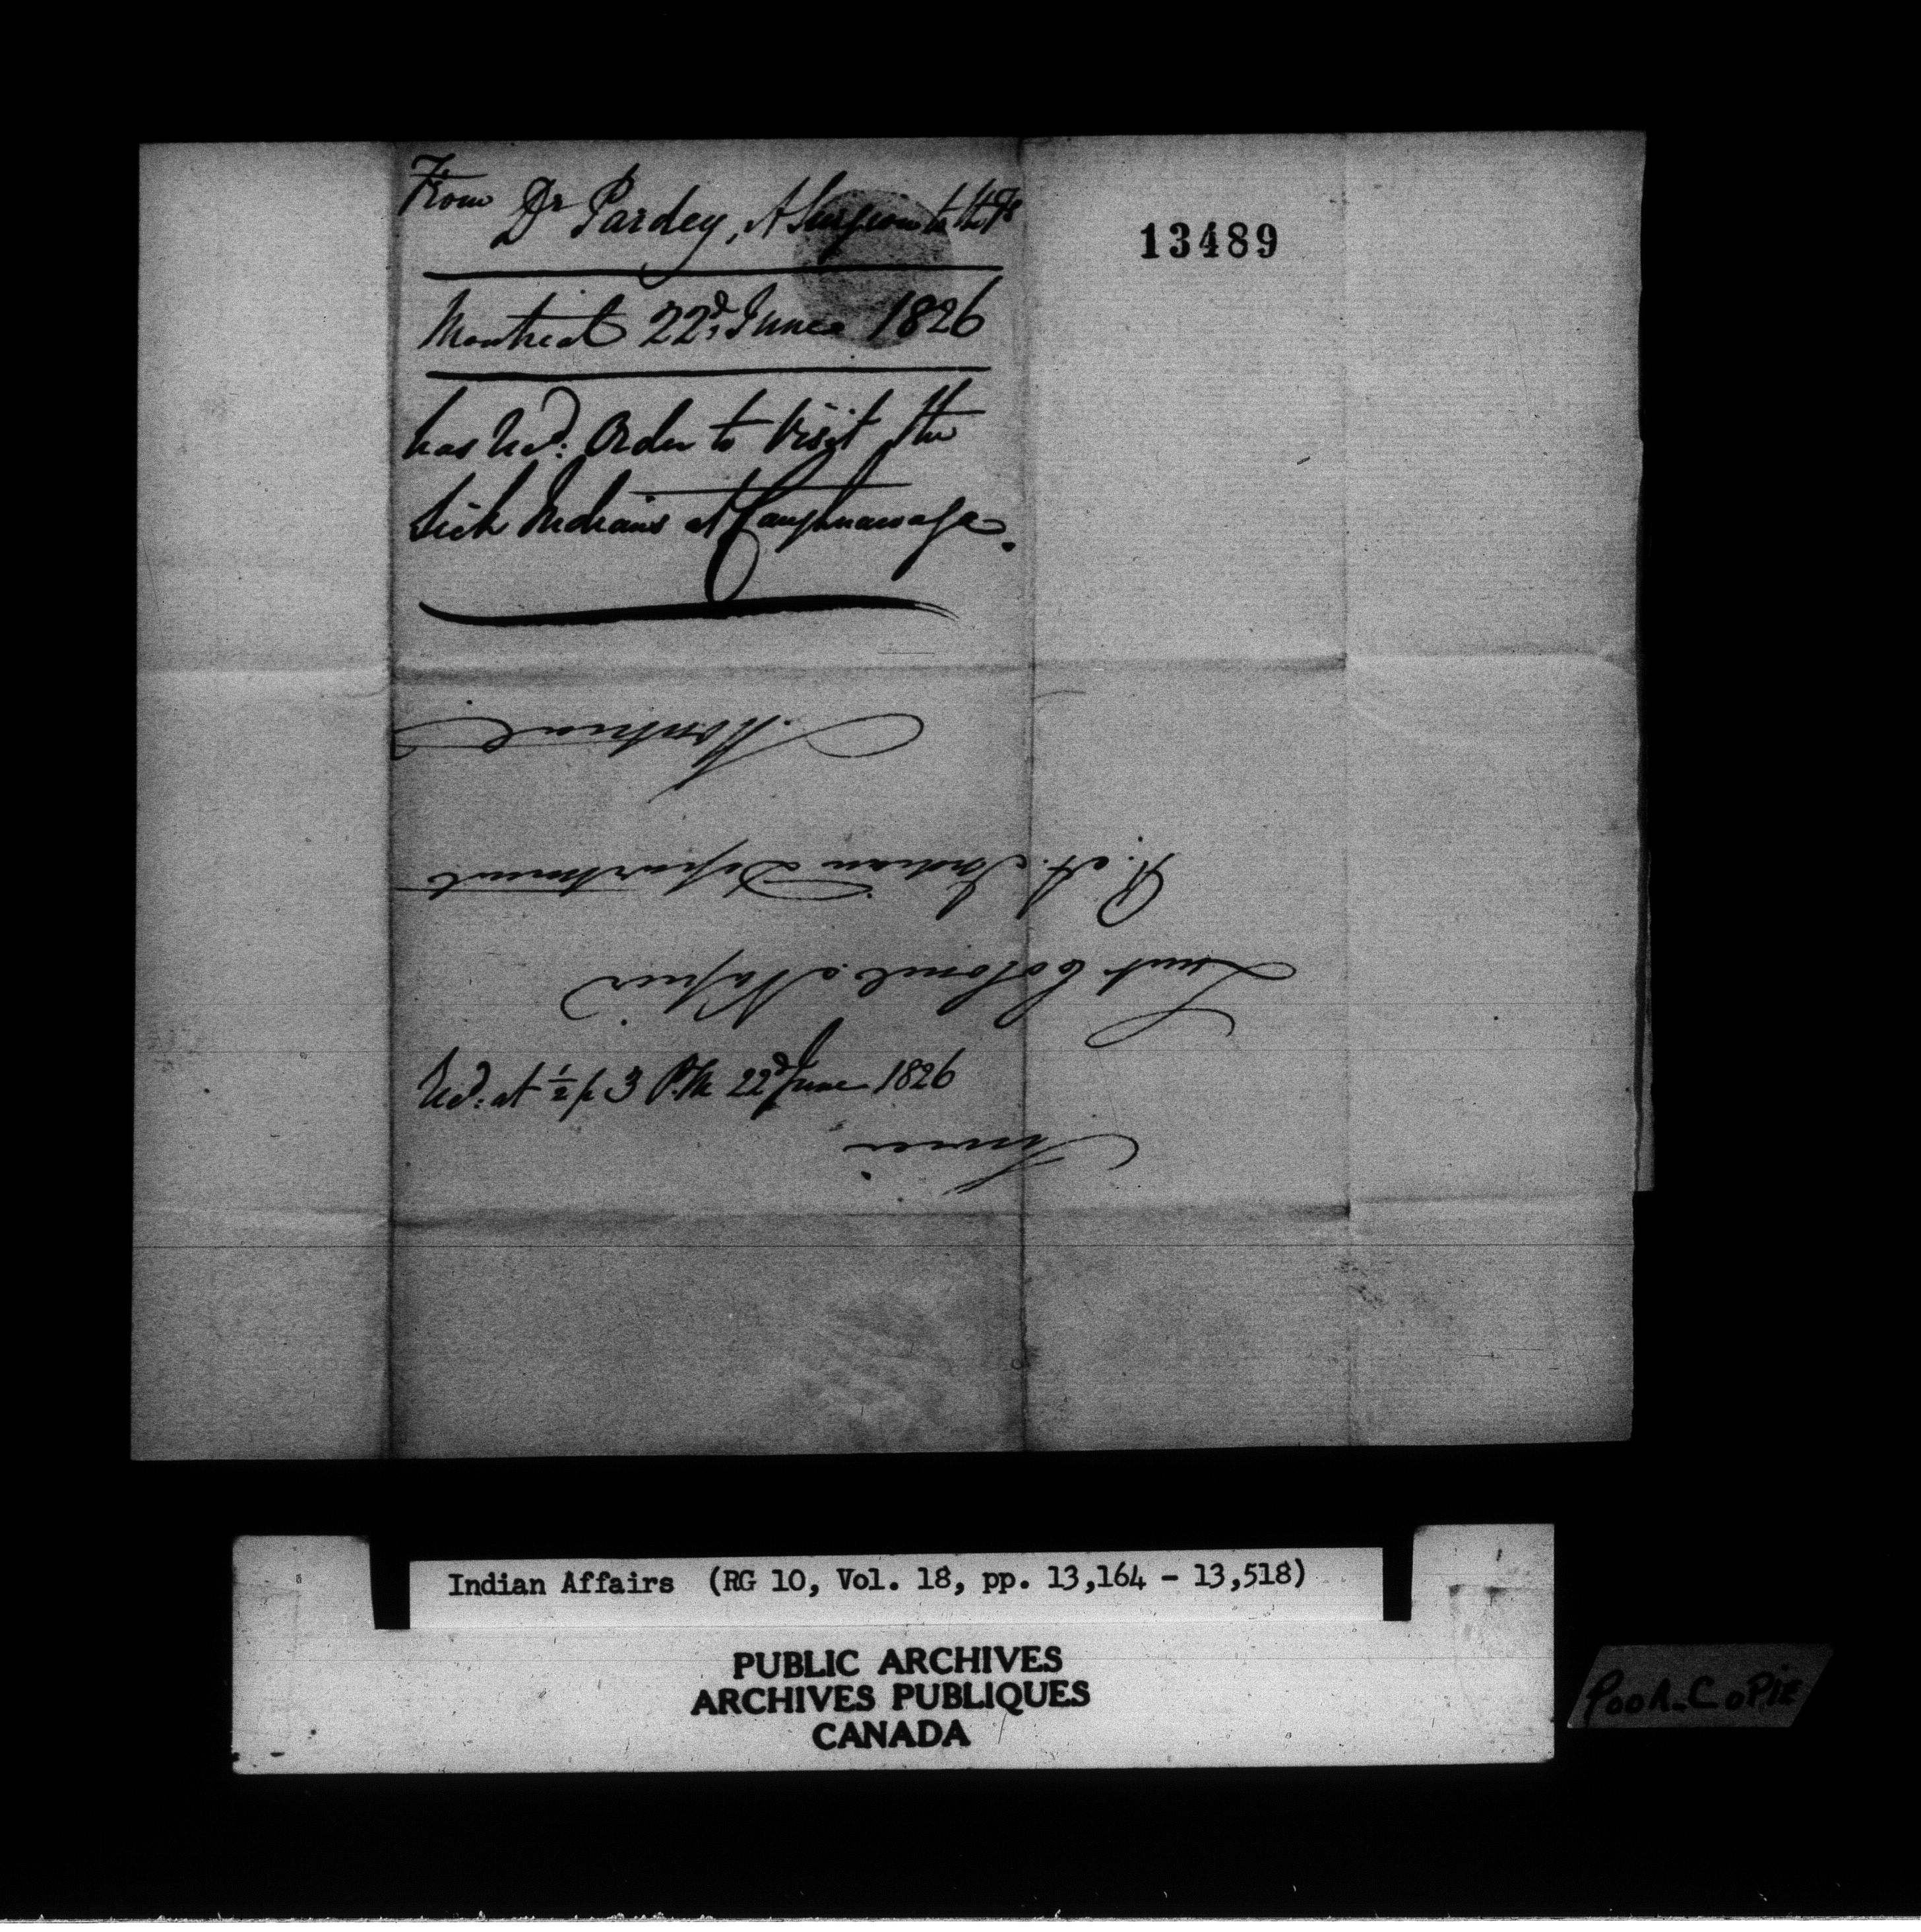 From Dr Pardey, A Surgeon to the Fs
Montreal 22d June 1826
has Recd: Order to Visit the
Sick Indians at Caughnawaga.
13489
Lieut Colonel Napier
R. A. Indian Department
Montreal
Recd: at ½ p 3 P.M 22d June 1826
Indian Affairs (RG 10, Vol. 18, pp. 13,164 - 13,518)
PUBLIC ARCHIVES
ARCHIVES PUBLIQUES
CANADA
POOR COPIE